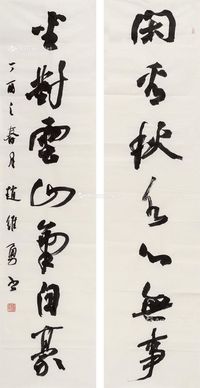 闲看秋水心無事
坐對雲山氣自豪
丁酉之春月趙維勇書